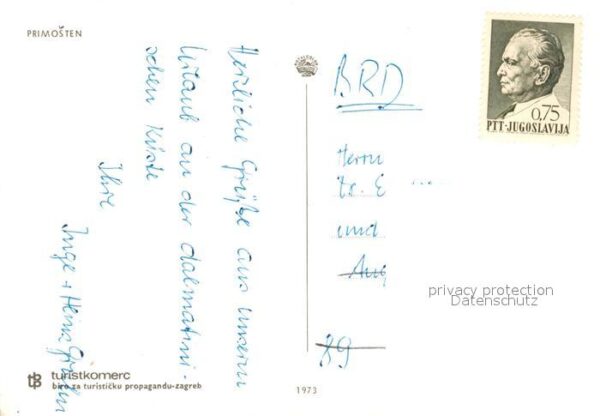 PRIMOŠTEN
Herzliche Grüße aus unserem
Urlaub an der dalmatini-
schen Küste
Ihre
Inge + Heinz
BRD
Herrn
und
89
0,75
PTT-JUGOSLAVIJA
privacy protection
Datenschutz
turistkomerc
biro za turističku propagandu-zagreb
1973